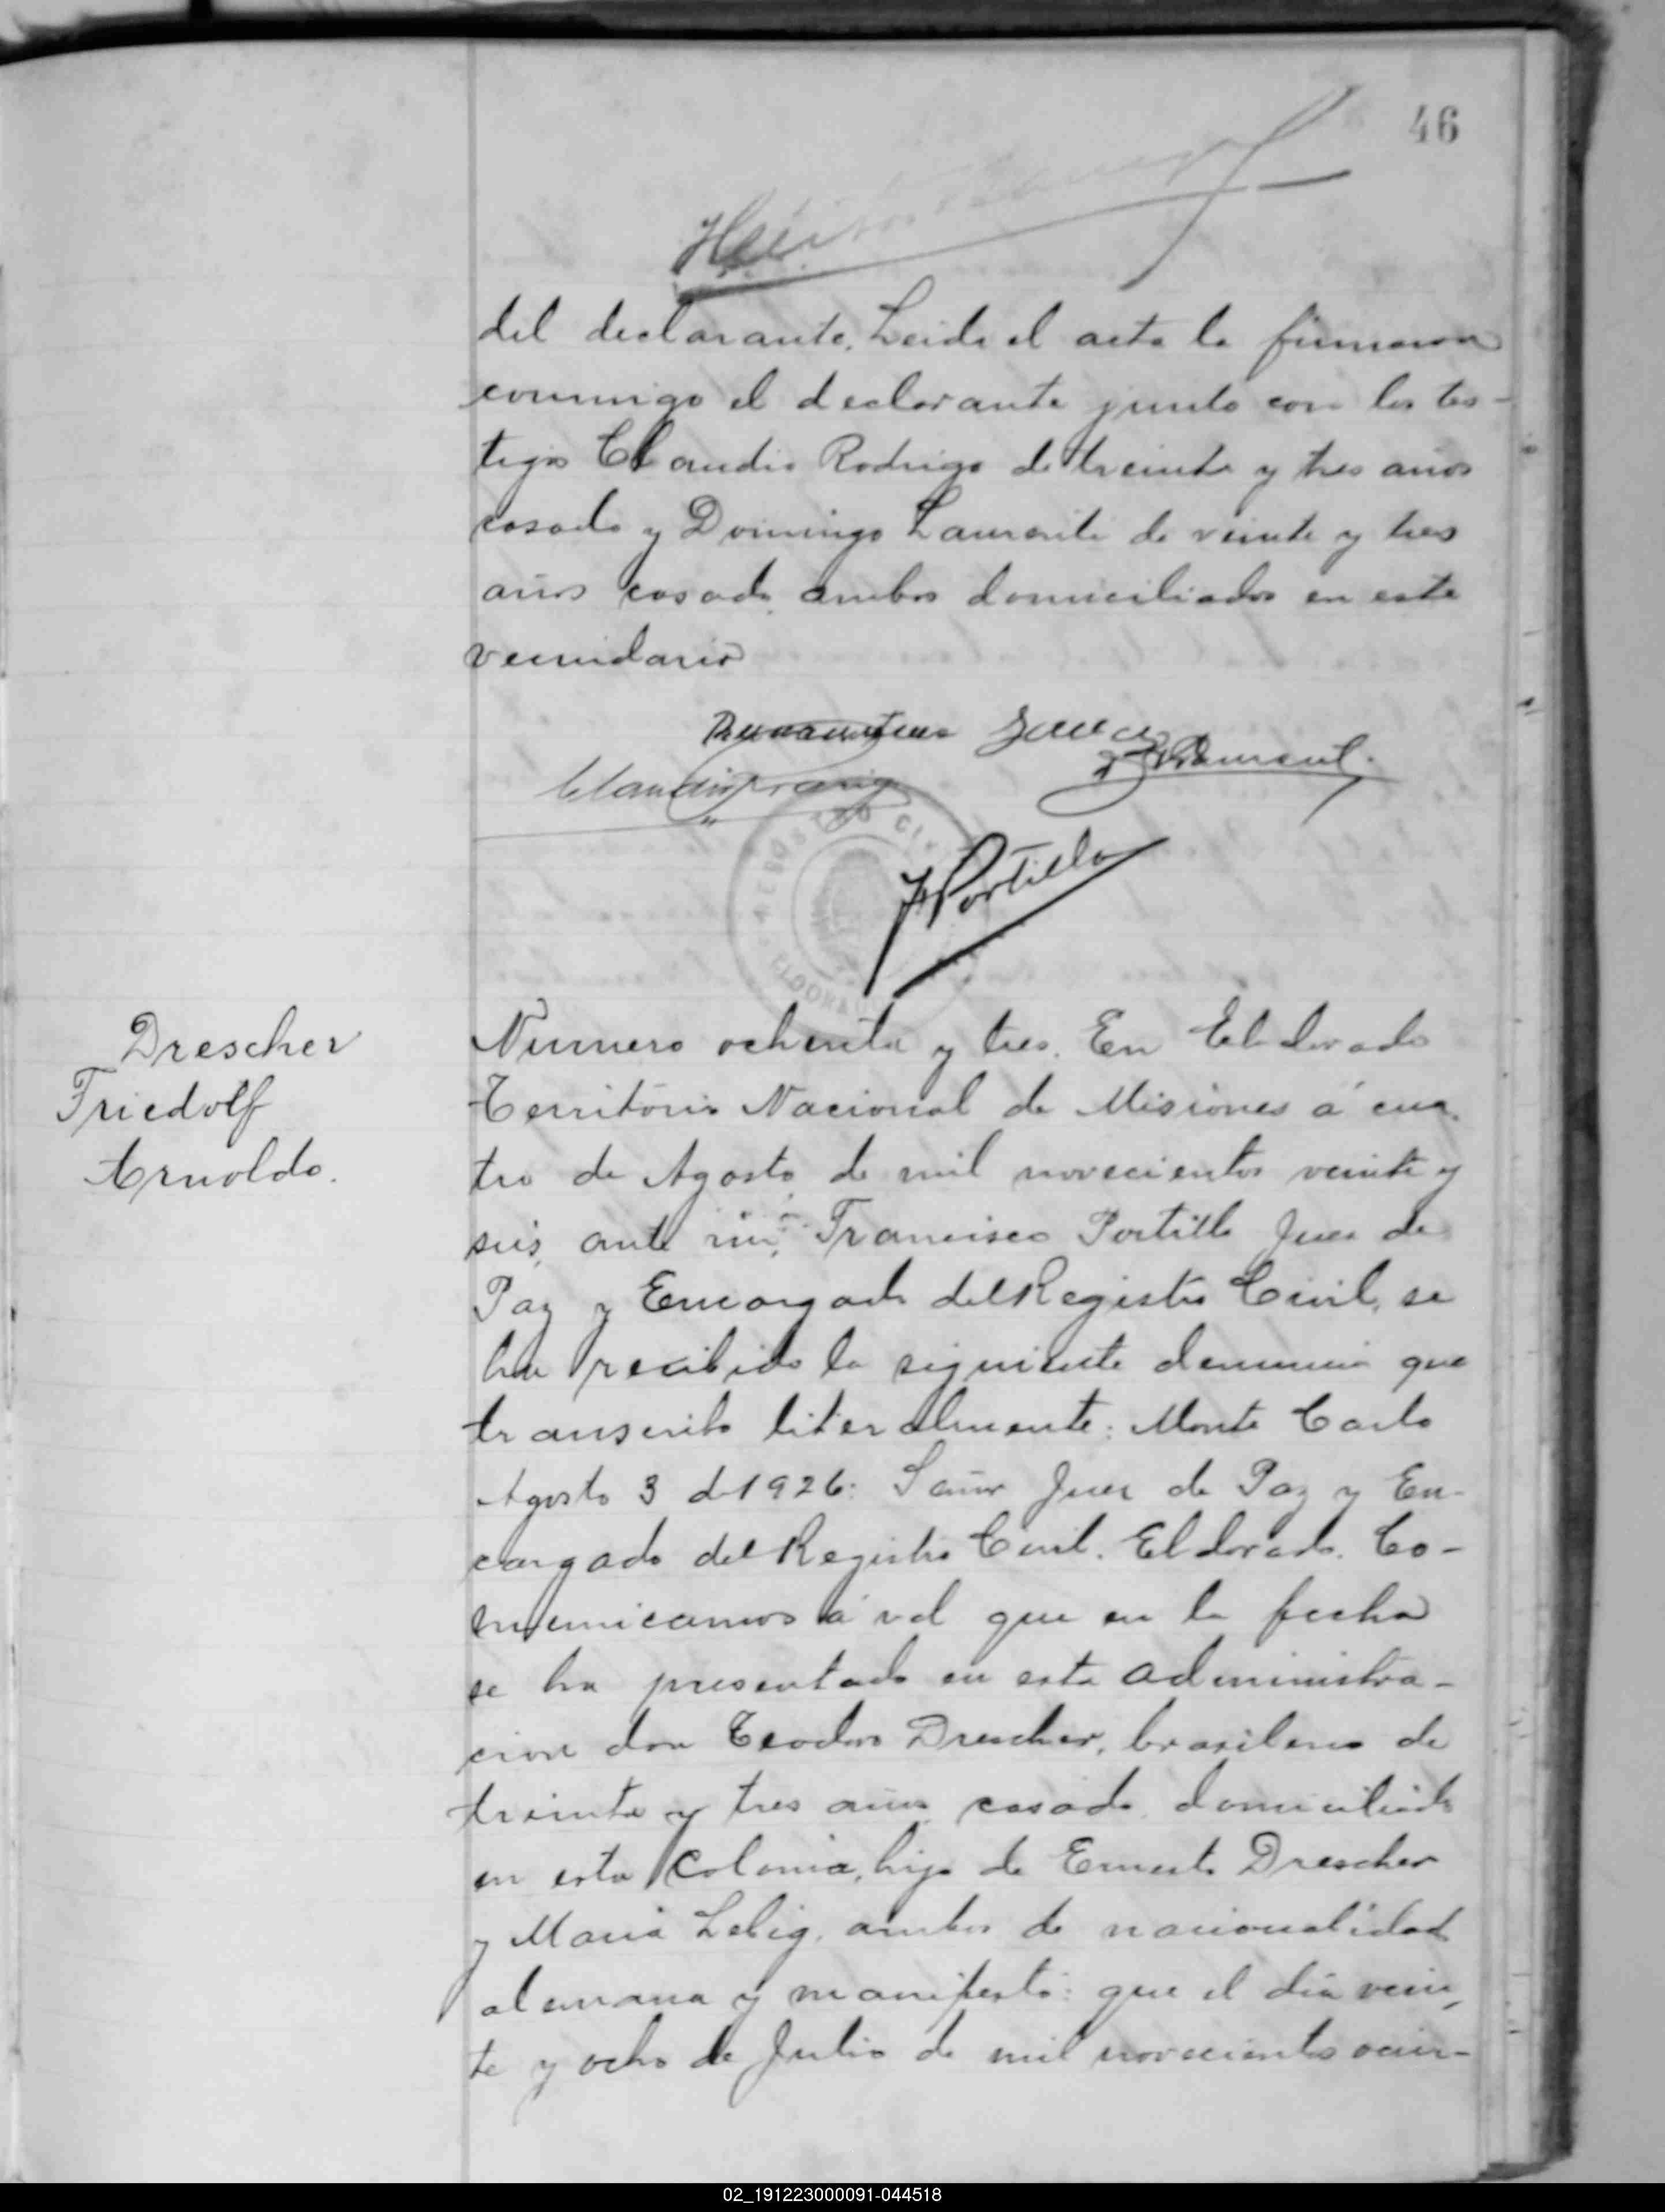 46
del declarante. Leida el acta la firmaron
conmigo el declarante junto con los tes-
tigos Claudio Rodrigo de treinta y tres años
casado y Domingo Laurenti de veinte y tres
años casado, ambos domiciliados en este
vecindario
J Portillo
REGISTRO CIVIL
ELDORADO
Drescher
Friedolf
Arnoldo.
Numero ochenta y tres. En Eldorado
Territorio Nacional de Misiones á cua-
tro de Agosto de mil novecientos veinte y
seis, ante mi, Francisco Portillo Juez de
Paz y Encargado del Registro Civil, se
ha recibido la siguiente denuncia que
transcribo literalmente: Monte Carlo
Agosto 3 de 1926: Señor Juez de Paz y En-
cargado del Registro Civil. Eldorado. Co-
municamos á vd que en la fecha
se ha presentado en esta administra-
cion don Teodoro Drescher, brasilero de
treinta y tres años casado, domiciliado
en esta Colonia, hijo de Ernesto Drescher
y Maria Lebig, ambos de nacionalidad
alemana y manifestó: que el dia vein-
te y ocho de Julio de mil novecientos vein-
02_191223000091-044518